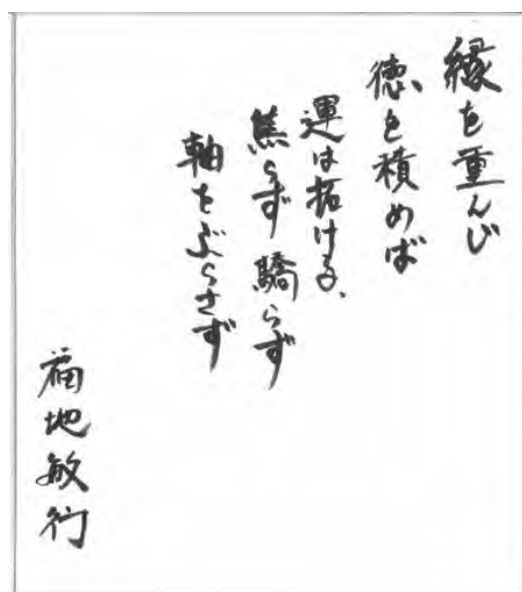 縁を重んじ
徳を積めば
運は拓ける、
焦らず 驕らず
軸をぶらさず
福地敏行